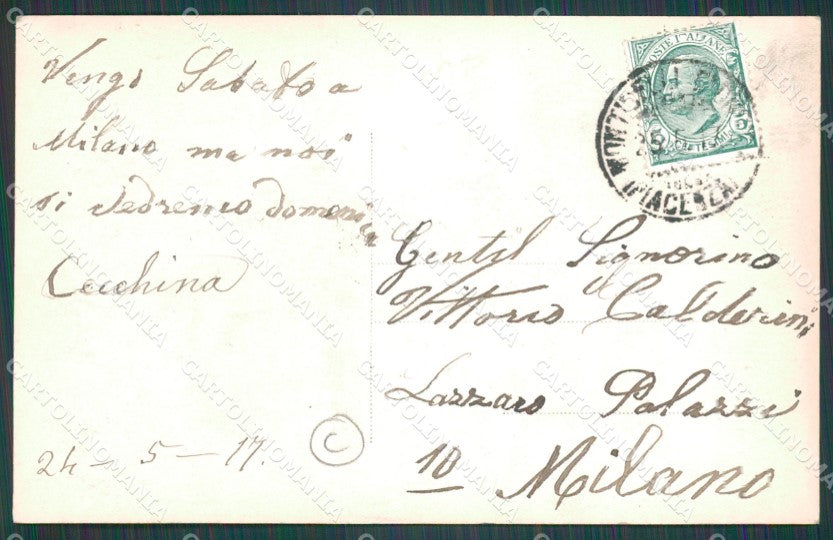 Vengo Sabato a
Milano ma noi
si vedremo domeni
ca
Cecchina
24 - 5 - 17.
C
POSTE ITALIANE
(PIACENZA)
Gentil Signorino
Vittorio Calderini
Lazzaro Palazzi
10 Milano
CARTOLINOMANIA